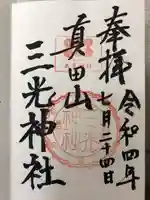 奉拝
令和四年
七月二十四日
真田山
三光神社